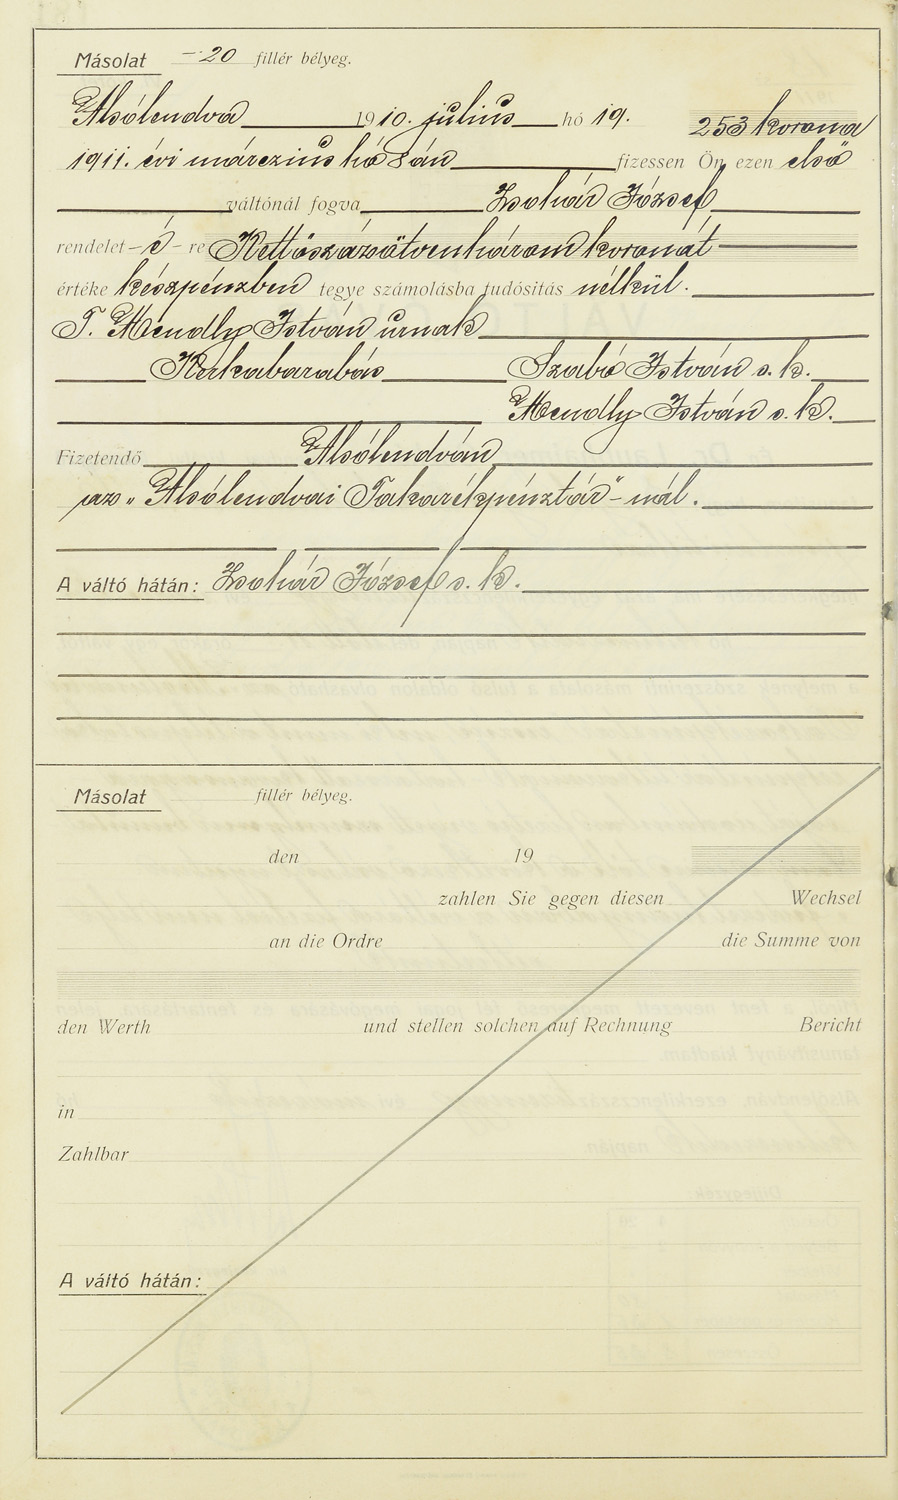 Másolat -20 fillér bélyeg.
Alsólendva 1910. július hó 19. 253 korona
1911. évi márczius hó 8án fizessen Ön ezen első
váltónál fogva Zsohár József
rendelet-é-re Kettőszázötvenhárom koronát
értéke készpénzben tegye számolásba tudósitás nélkül.
T. Mendly István urnak
Kerkabarabás Szabó István s. k.
Mendly István s. k.
Fizetendő Alsólendván
az „Alsólendvai Takarékpénztár"-nál.
A váltó hátán: Zsohár József s. k.
Másolat fillér bélyeg.
den 19
zahlen Sie gegen diesen Wechsel
an die Ordre die Summe von
den Werth und stellen solchen auf Rechnung Bericht
in
Zahlbar
A váltó hátán: